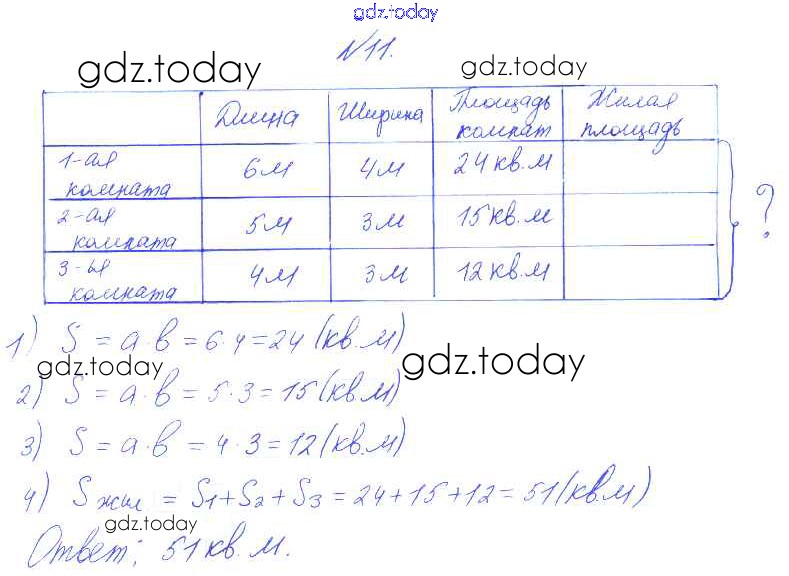 gdz.today
№11.
gdz.today gdz.today
Длина Ширина Площадь комнат Жилая площадь
1-ая комната 6м 4м 24 кв.м
2-ая комната 5м 3м 15 кв.м
3-ья комната 4м 3м 12 кв.м
?
1) S = a·в = 6·4 = 24 (кв.м)
gdz.today gdz.today
2) S = a·в = 5·3 = 15 (кв.м)
3) S = a·в = 4·3 = 12 (кв.м)
4) Sжил = S1+S2+S3 = 24+15+12 = 51 (кв.м)
gdz.today
Ответ: 51 кв.м.